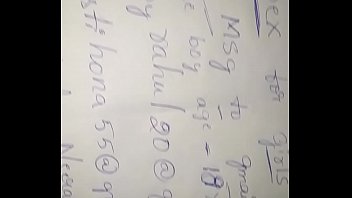 ex for girls
MSg to gmai
e boy age - 18
y rahul20@g
hona55@g